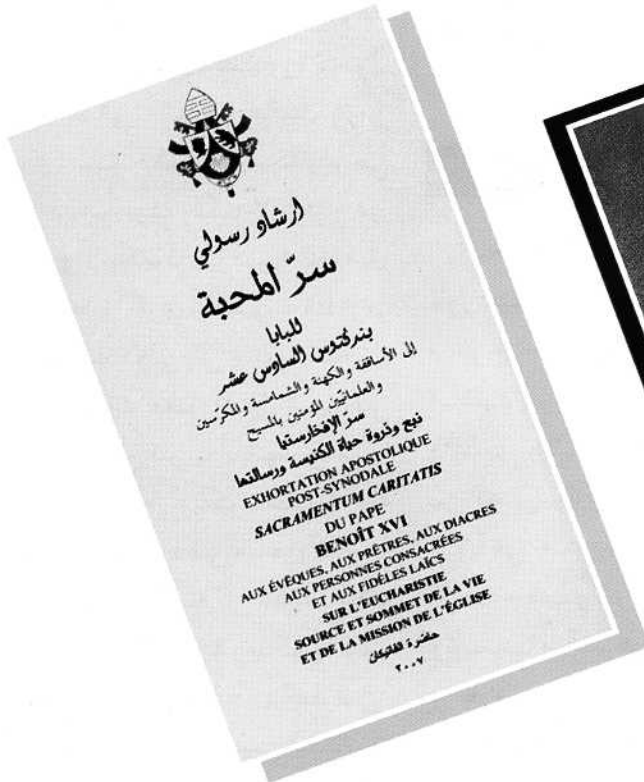 ارشاد رسولي
سرّ المحبة
للبابا
بندكتوس السادس عشر
إلى الأساقفة والكهنة والشمامسة والمكرّسين
والعلمانيّين المؤمنين بالمسيح
سرّ الإفخارستيا
نبع وذروة حياة الكنيسة ورسالتها
EXHORTATION APOSTOLIQUE
POST-SYNODALE
SACRAMENTUM CARITATIS
DU PAPE
BENOÎT XVI
AUX ÉVÊQUES, AUX PRÊTRES, AUX DIACRES
AUX PERSONNES CONSACRÉES
ET AUX FIDÈLES LAÏCS
SUR L'EUCHARISTIE
SOURCE ET SOMMET DE LA VIE
ET DE LA MISSION DE L'ÉGLISE
حاضرة الفاتيكان
٢٠٠٧